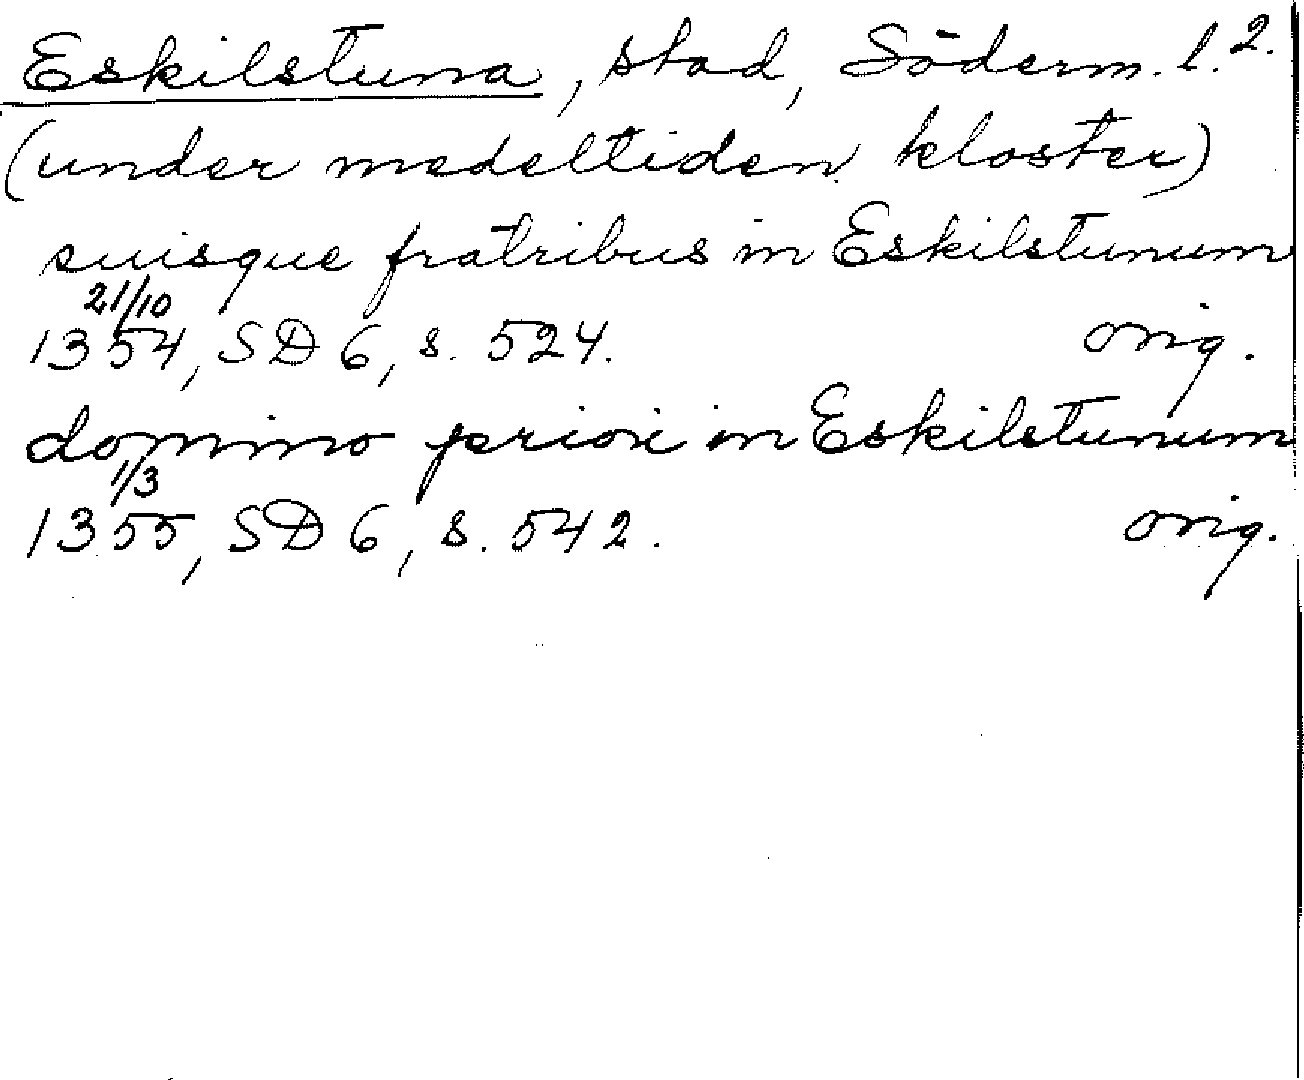 Eskilstuna, stad, Söderm. l. 2.
(under medeltiden kloster)
suisque fratribus in Eskilstunum
21/10
1354, SD 6, s. 524. orig.
domino priori in Eskilstunum
1/3
1355, SD 6, s. 542. orig.